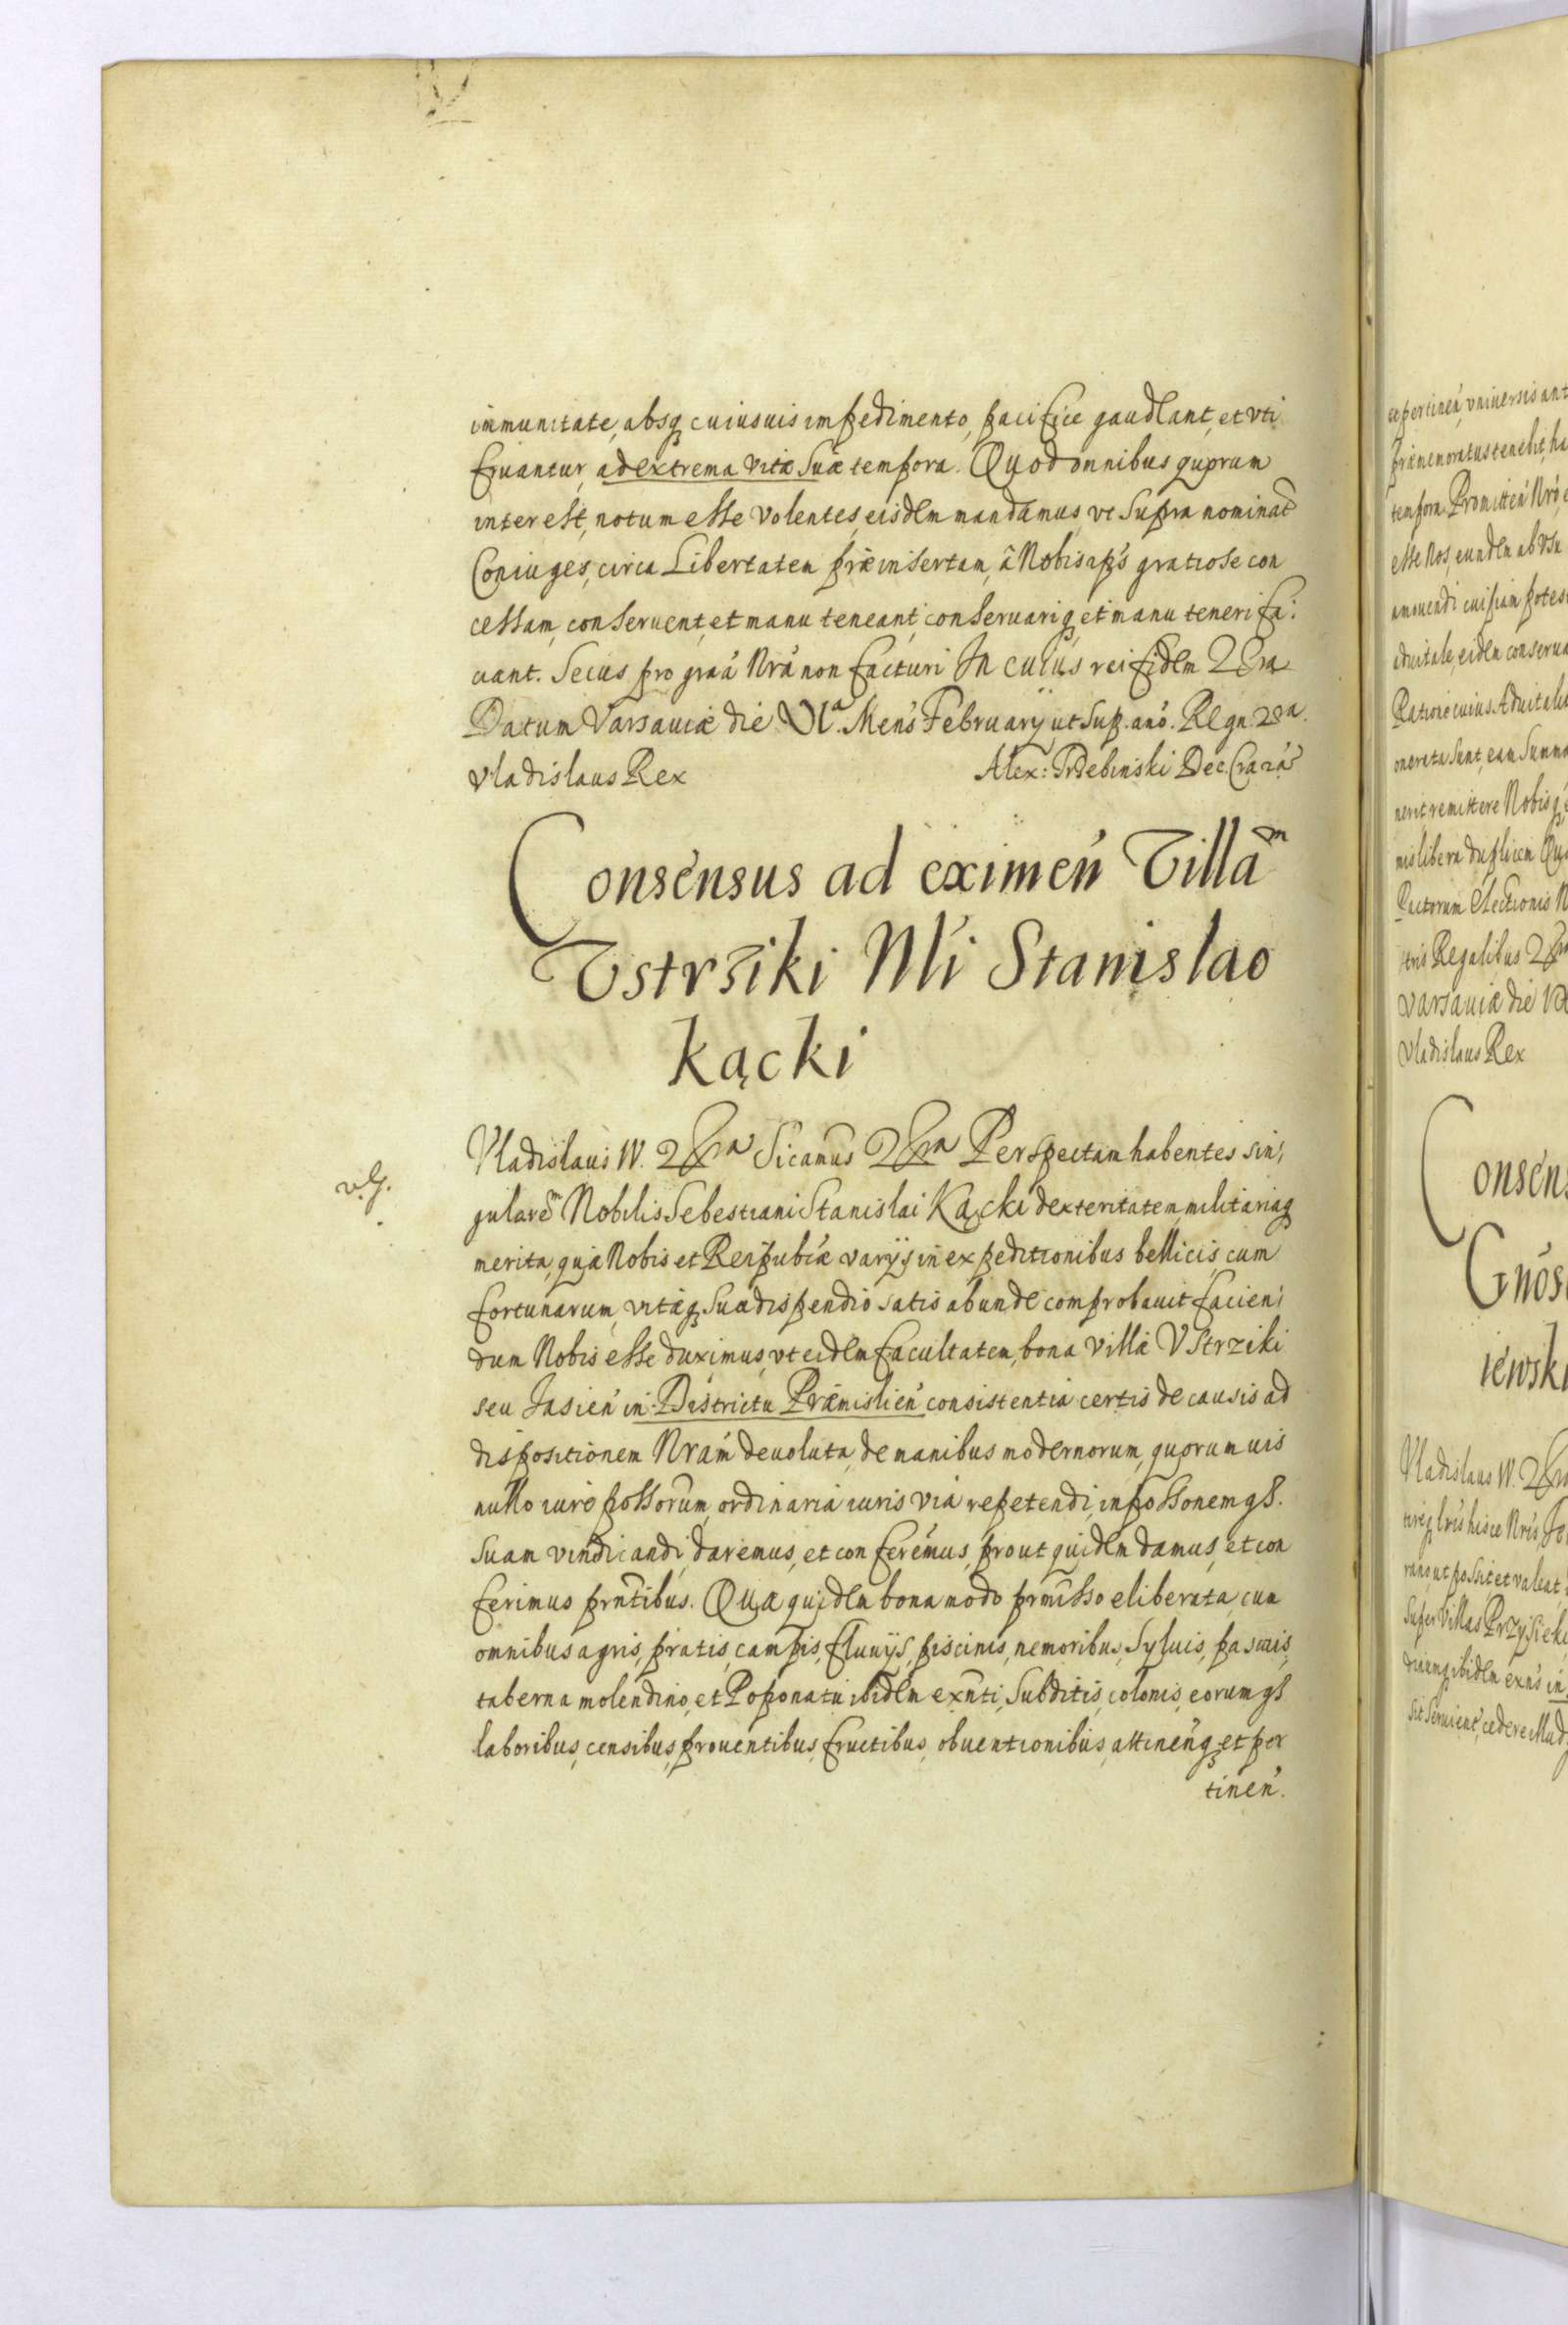 immunitate, absq cuiusuis impedimento, pacifice gaudeant, et vti
fruantur, ad extrema vitæ suæ tempora. Quod omnibus quorum
interest, notum esse volentes, eisdem mandamus, vt supra nominat
Coniuges, circa Libertatem præinsertam, â Nobis ips gratiose con
cessam, conseruent, et manu teneant, conseruariq, et manu teneri fa:
ciant. Secus pro graa Nra non facturi In cuius rei fidem
Datum Varsauiæ die VIa. Mens February ut sup. ano. Regn:
Vladislaus Rex
Alex: Trzebinski
Consensus ad eximen Villam
Vstrziki Nli Stanislao
Kącki
Vladislaus IV. Perspectam habentes sin;
v.g.
gularem Nobilis Sebestiani Stanislai Kącki dexteritatem, militariaq
merita, quæ Nobis et Reipubcæ varijs in expeditionibus bellicis, cum
fortunarum, vitæq suæ dispendio satis abunde comprobauit facien;
dum Nobis esse duximus, vt eidem facultatem, bona villæ Vstrziki
seu Jasien in Districtu Præmislien consistentia certis de causis ad
dispositionem Nram deuoluta, de manibus modernorum, quorumuis
nullo iure possorum, ordinaria iuris via repetendi, in possonemqs.
suam vindicandi, daremus, et conferemus, prout quidem damus, et con
ferimus prntibus. Quæ quidem bona modo prmisso eliberata, cum
omnibus agris, pratis, campis, fluuijs, piscinis, nemoribus, syluis, pascuis,
taberna molendino, et Poponatu ibidem exnti, subditis, colonis, eorumqs
laboribus, censibus, prouentibus, fructibus, obuentionibus, attinenq, et per
tinen.
expertinen, vniuersis
præmemoratus tenebit,
tempora. Promitten Nro
esse Nos, eundem ab vsu
amouendi
aduitale, eidem
Ratione cuius Aduitalit
onerata sunt, eam summa
remittere Nobis
libera duplicem
Pactorum Electionis
Regalibus
Varsauiæ die
Vladislaus Rex
Consens
Gnos
iewski
Vladislaus IV.
hisce Nris
ut possit et valeat
super Villas Przysieki
ibidem exns in
cedere illud